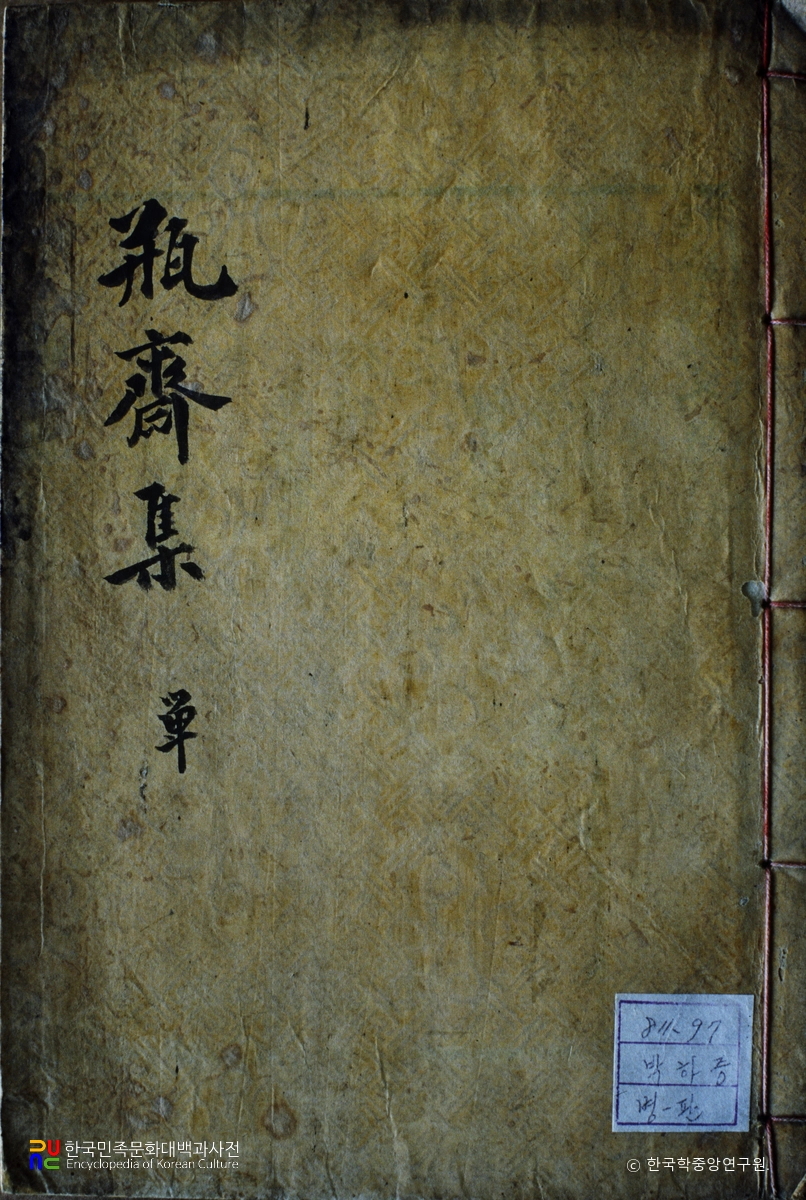 瓶齋集
単
811.97
박하증
병-판
한국민족문화대백과사전
Encyclopedia of Korean Culture
© 한국학중앙연구원